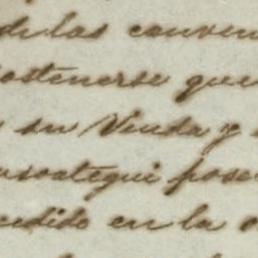 de las conven
ostenerse que
su Viuda y
suategui pose
endido en la